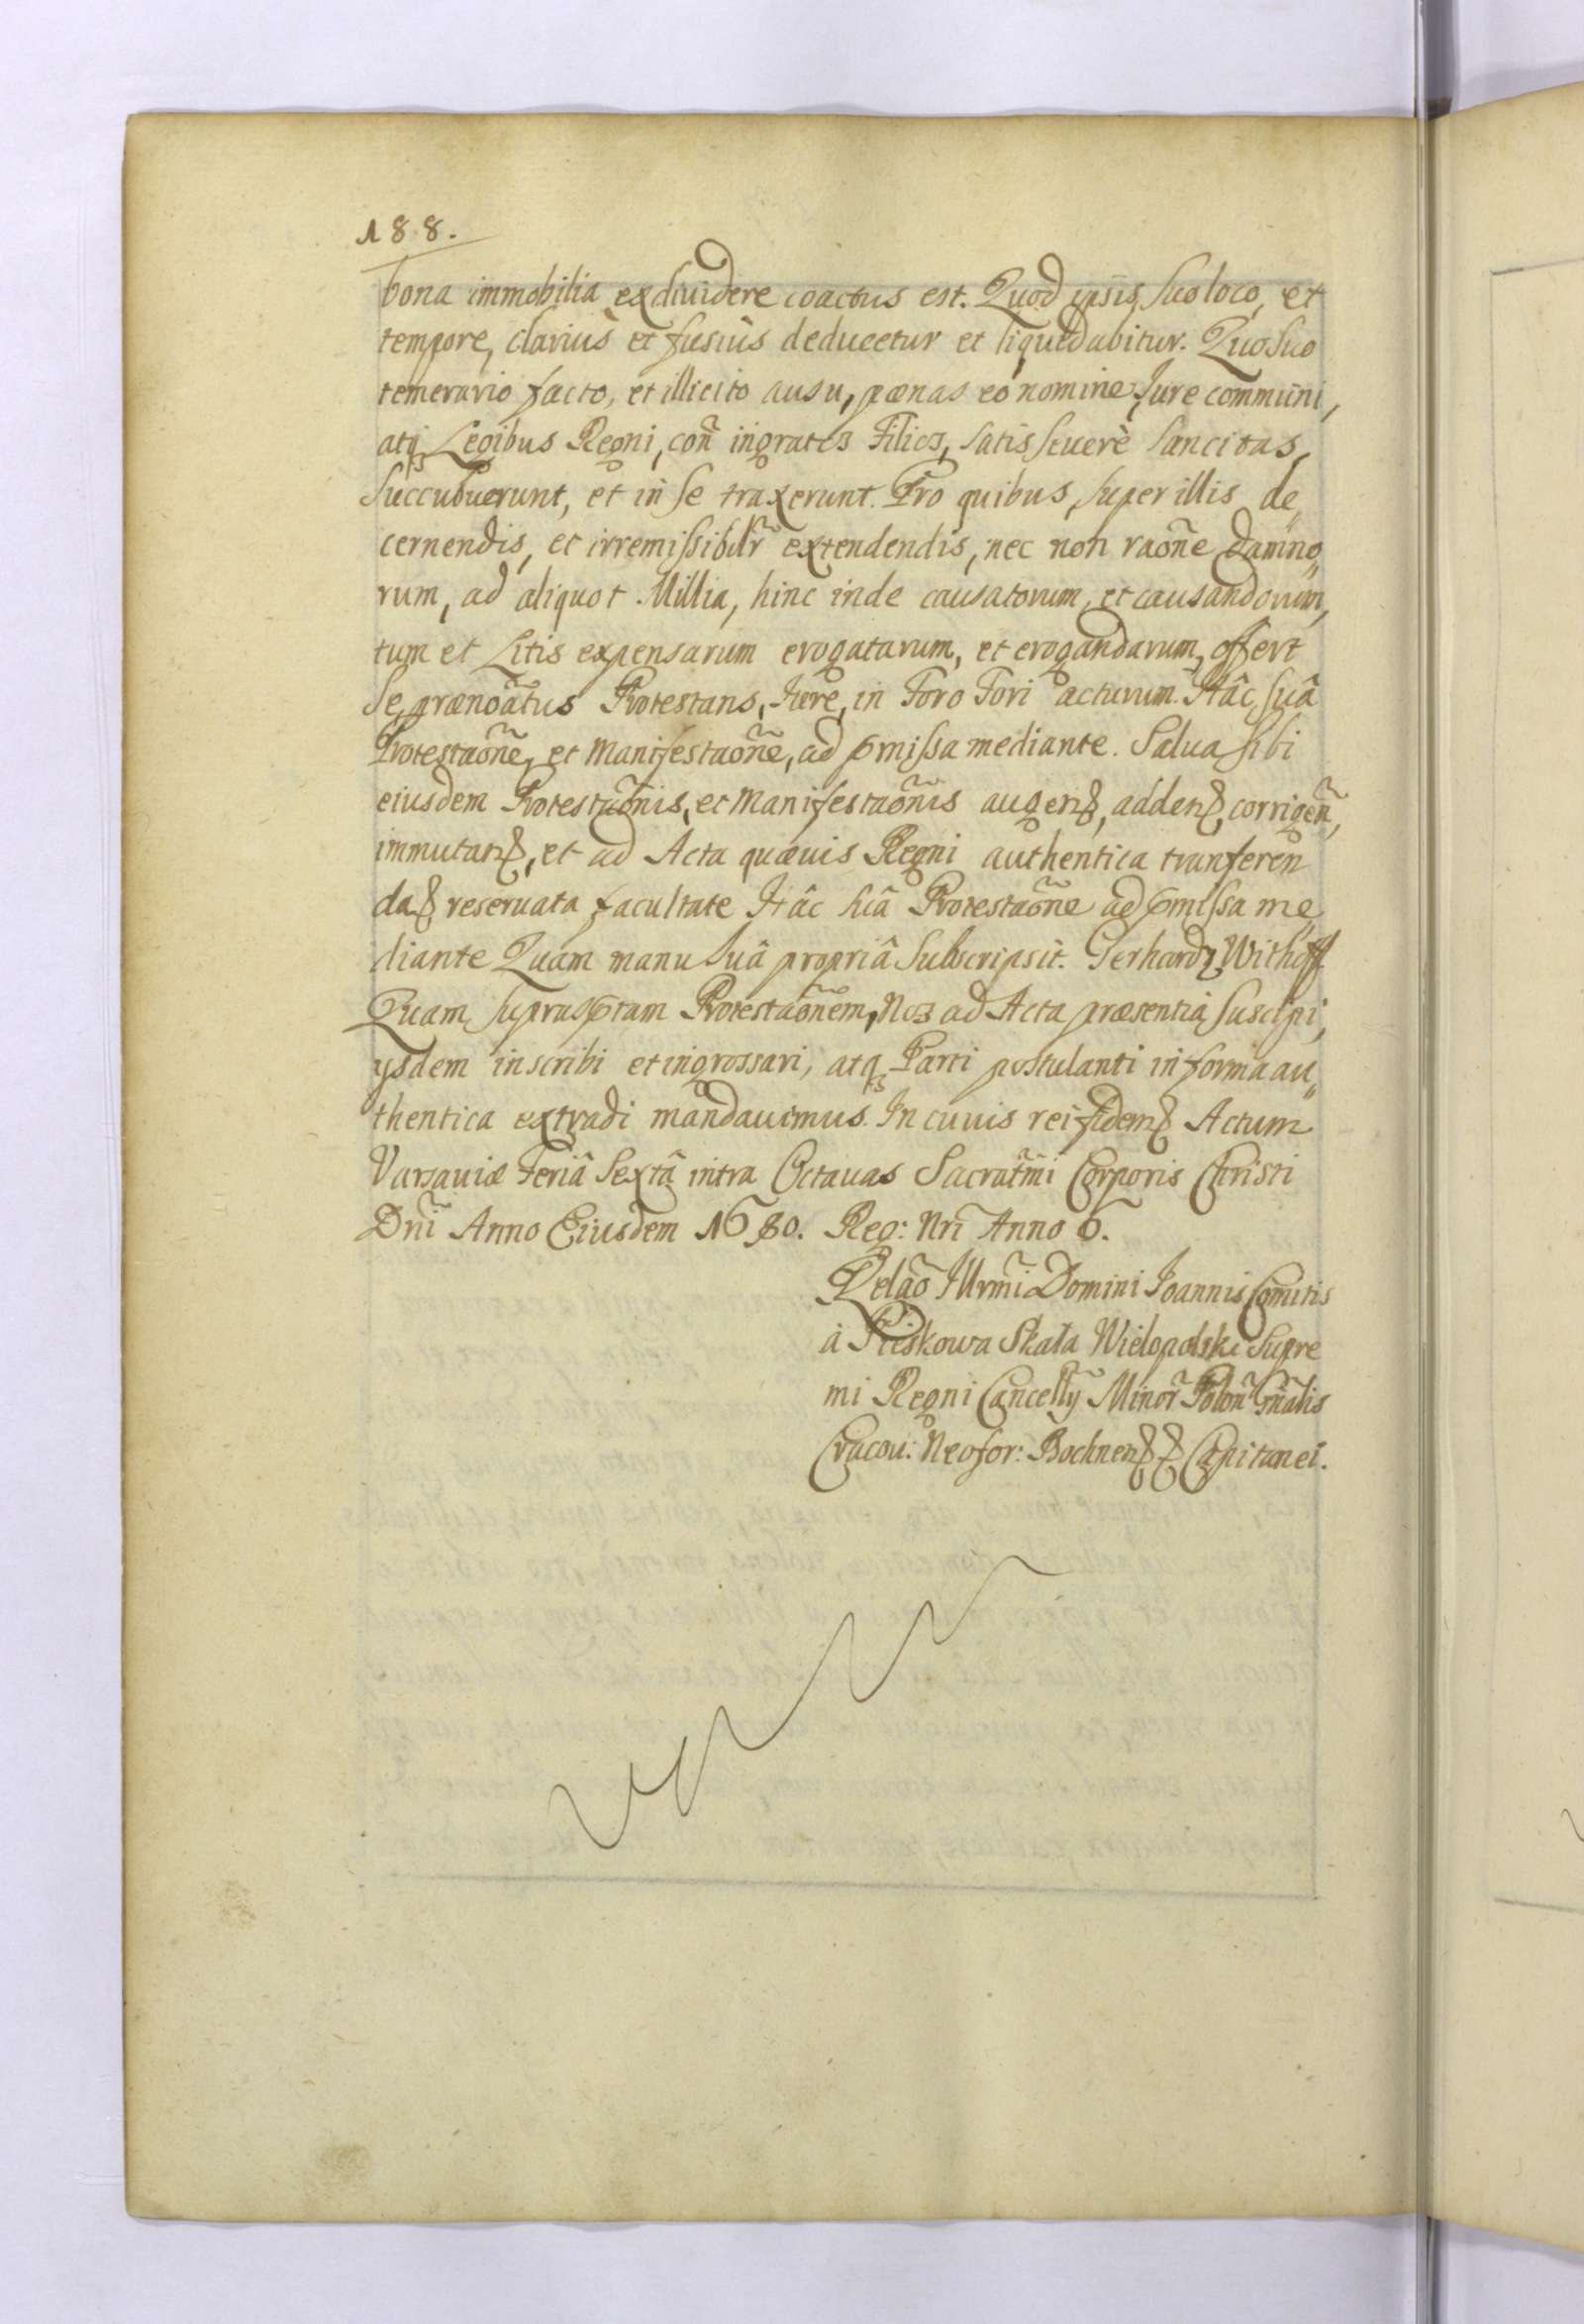 188.
bona immobilia exdiuidere coactus est. Quod ipsis suo loco, et
tempore, clariùs et fusiùs deducetur et liquedabitur. Quo suo
temerario facto, et illicito ausu, pœnas eo nomine Jure communi,
atq₃ Legibus Regni, con̄ ingratos Filios, satis seuerè sancitas,
succubuerunt, et in se traxerunt. Pro quibus, super illis de„
cernendis, et irremissibilr̃ extendendis, nec non raõne damno„
rum, ad aliquot Millia, hinc inde causatorum, et causandorum,
tum et Litis expensarum erogatarum, et erogandarum, offert
se prænoãtus Protestans, Jure, in Foro Fori acturum. Hâc suâ
Protestaõne, et Manifestaõne, ad pmissa mediante. Salua sibi
eiusdem Protestaõnis, et Manifestaõnis augen&, adden&, corrigeñ,
immutan&, et ad Acta quæuis Regni authentica tranferen
da& reseruata facultate Hâc suâ Protestaõne ad pmissa me„
diante Quam manu suâ propriâ subscripsit. Gerhardq Withoff
Quam suprascptam Protestaõnem, Nos ad Acta præsentia suscipi,
ysdem inscribi et ingrossari, atq₃ Parti postulanti in forma au„
thentica extradi mandauimus. In cuuis rei fidem& Actum
Varsauiæ Feriâ Sextâ intra Octauas Sacratm̃i Corporis Christi
Dnĩ Anno Eiusdem 1680. Reg: Nrĩ Anno 6.
Relaõ Illrmĩ Domini Joannis Comitis
à Pieskowa Skała Wielopolski Supre
mi Regni Cancellỹ Minor̃ Poloñ Gñalis
Cracou: Neofor: Bochnen& & Capitanei.